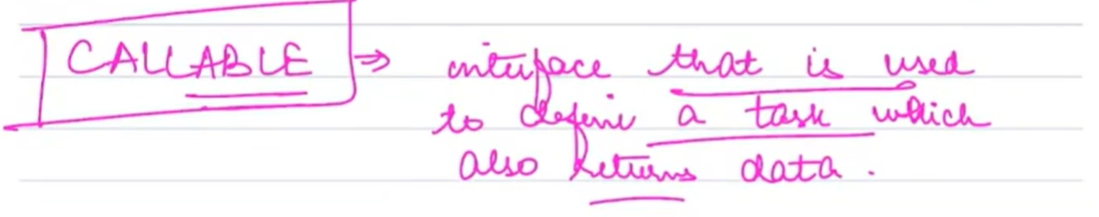 CALLABLE ⇒ interface that is used
to define a task which
also returns data.